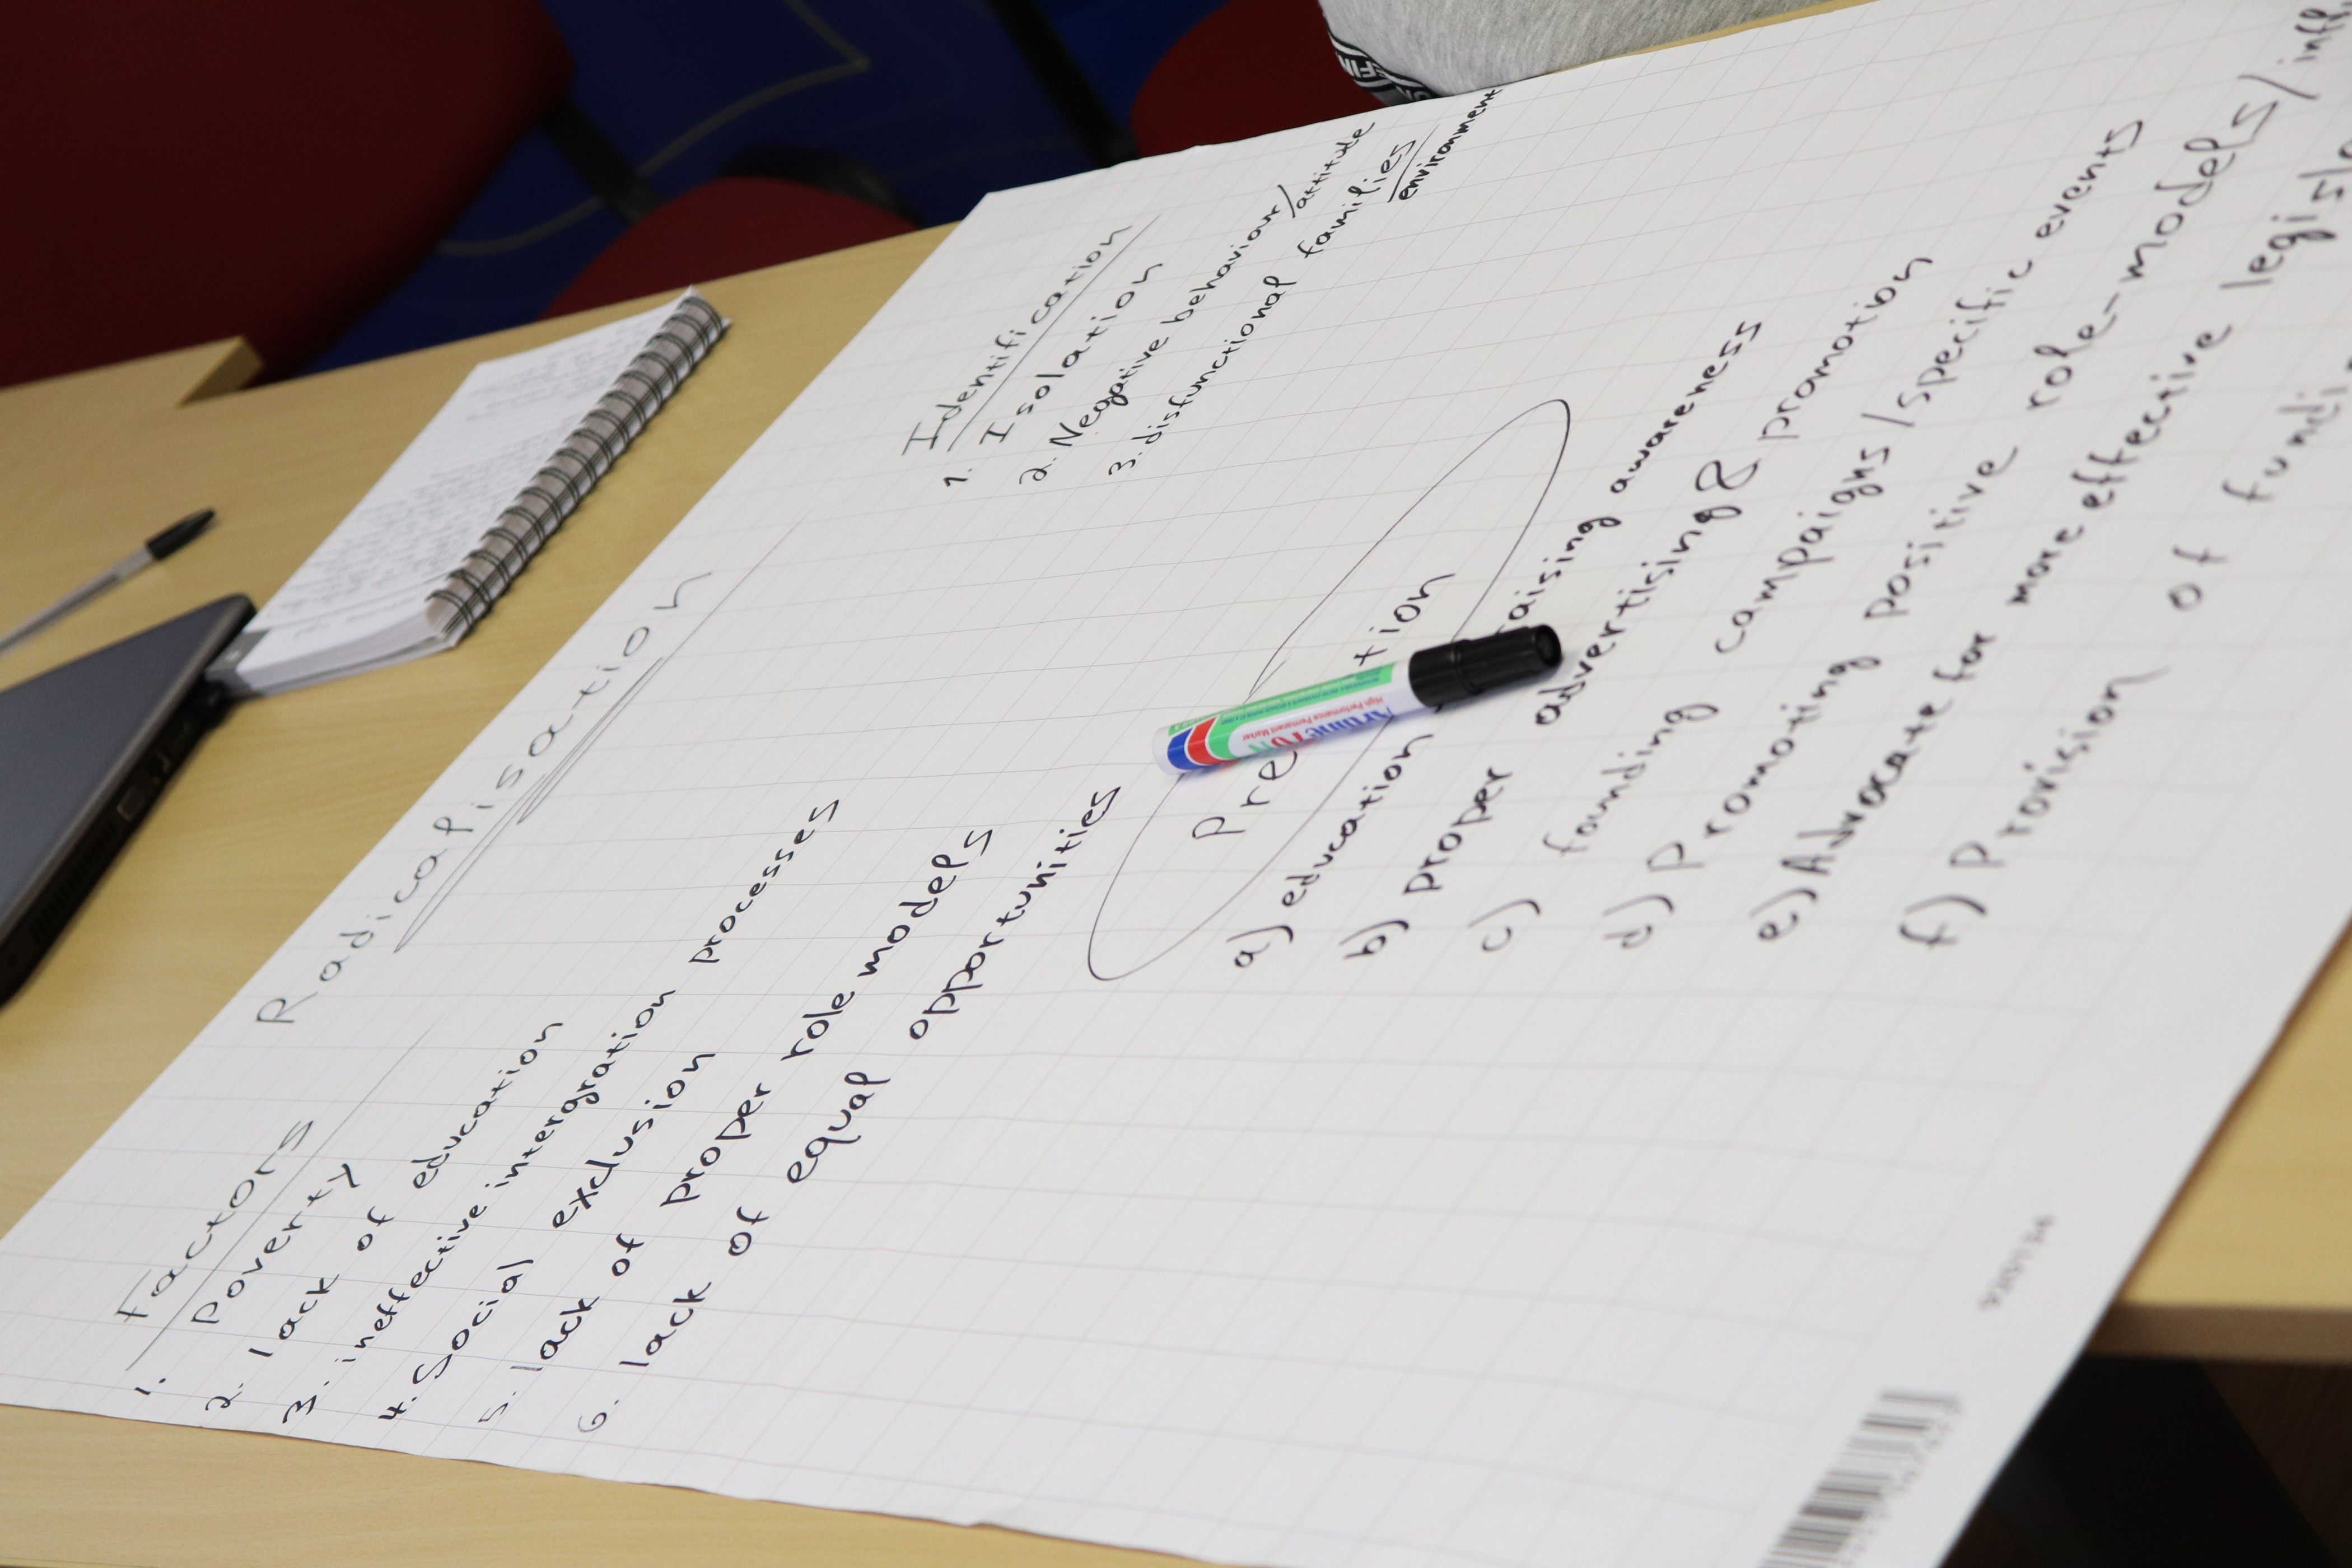 Radicalisation
Factors
1. poverty
2. lack of education
3. ineffective intergration processes
4. Social exclusion
5. lack of proper role models
6. lack of equal opportunities
Identification
1. Isolation
2. Negative behaviour/attitude
3. disfunctional families
environment
Pre tion
a) education raising awareness
b) proper advertising & promotion
c) founding campaigns/specific events
d) Promoting positive role-models/
e) Advocate for more effective
f) Provision of
Artline 70N
High Performance Permanent Marker